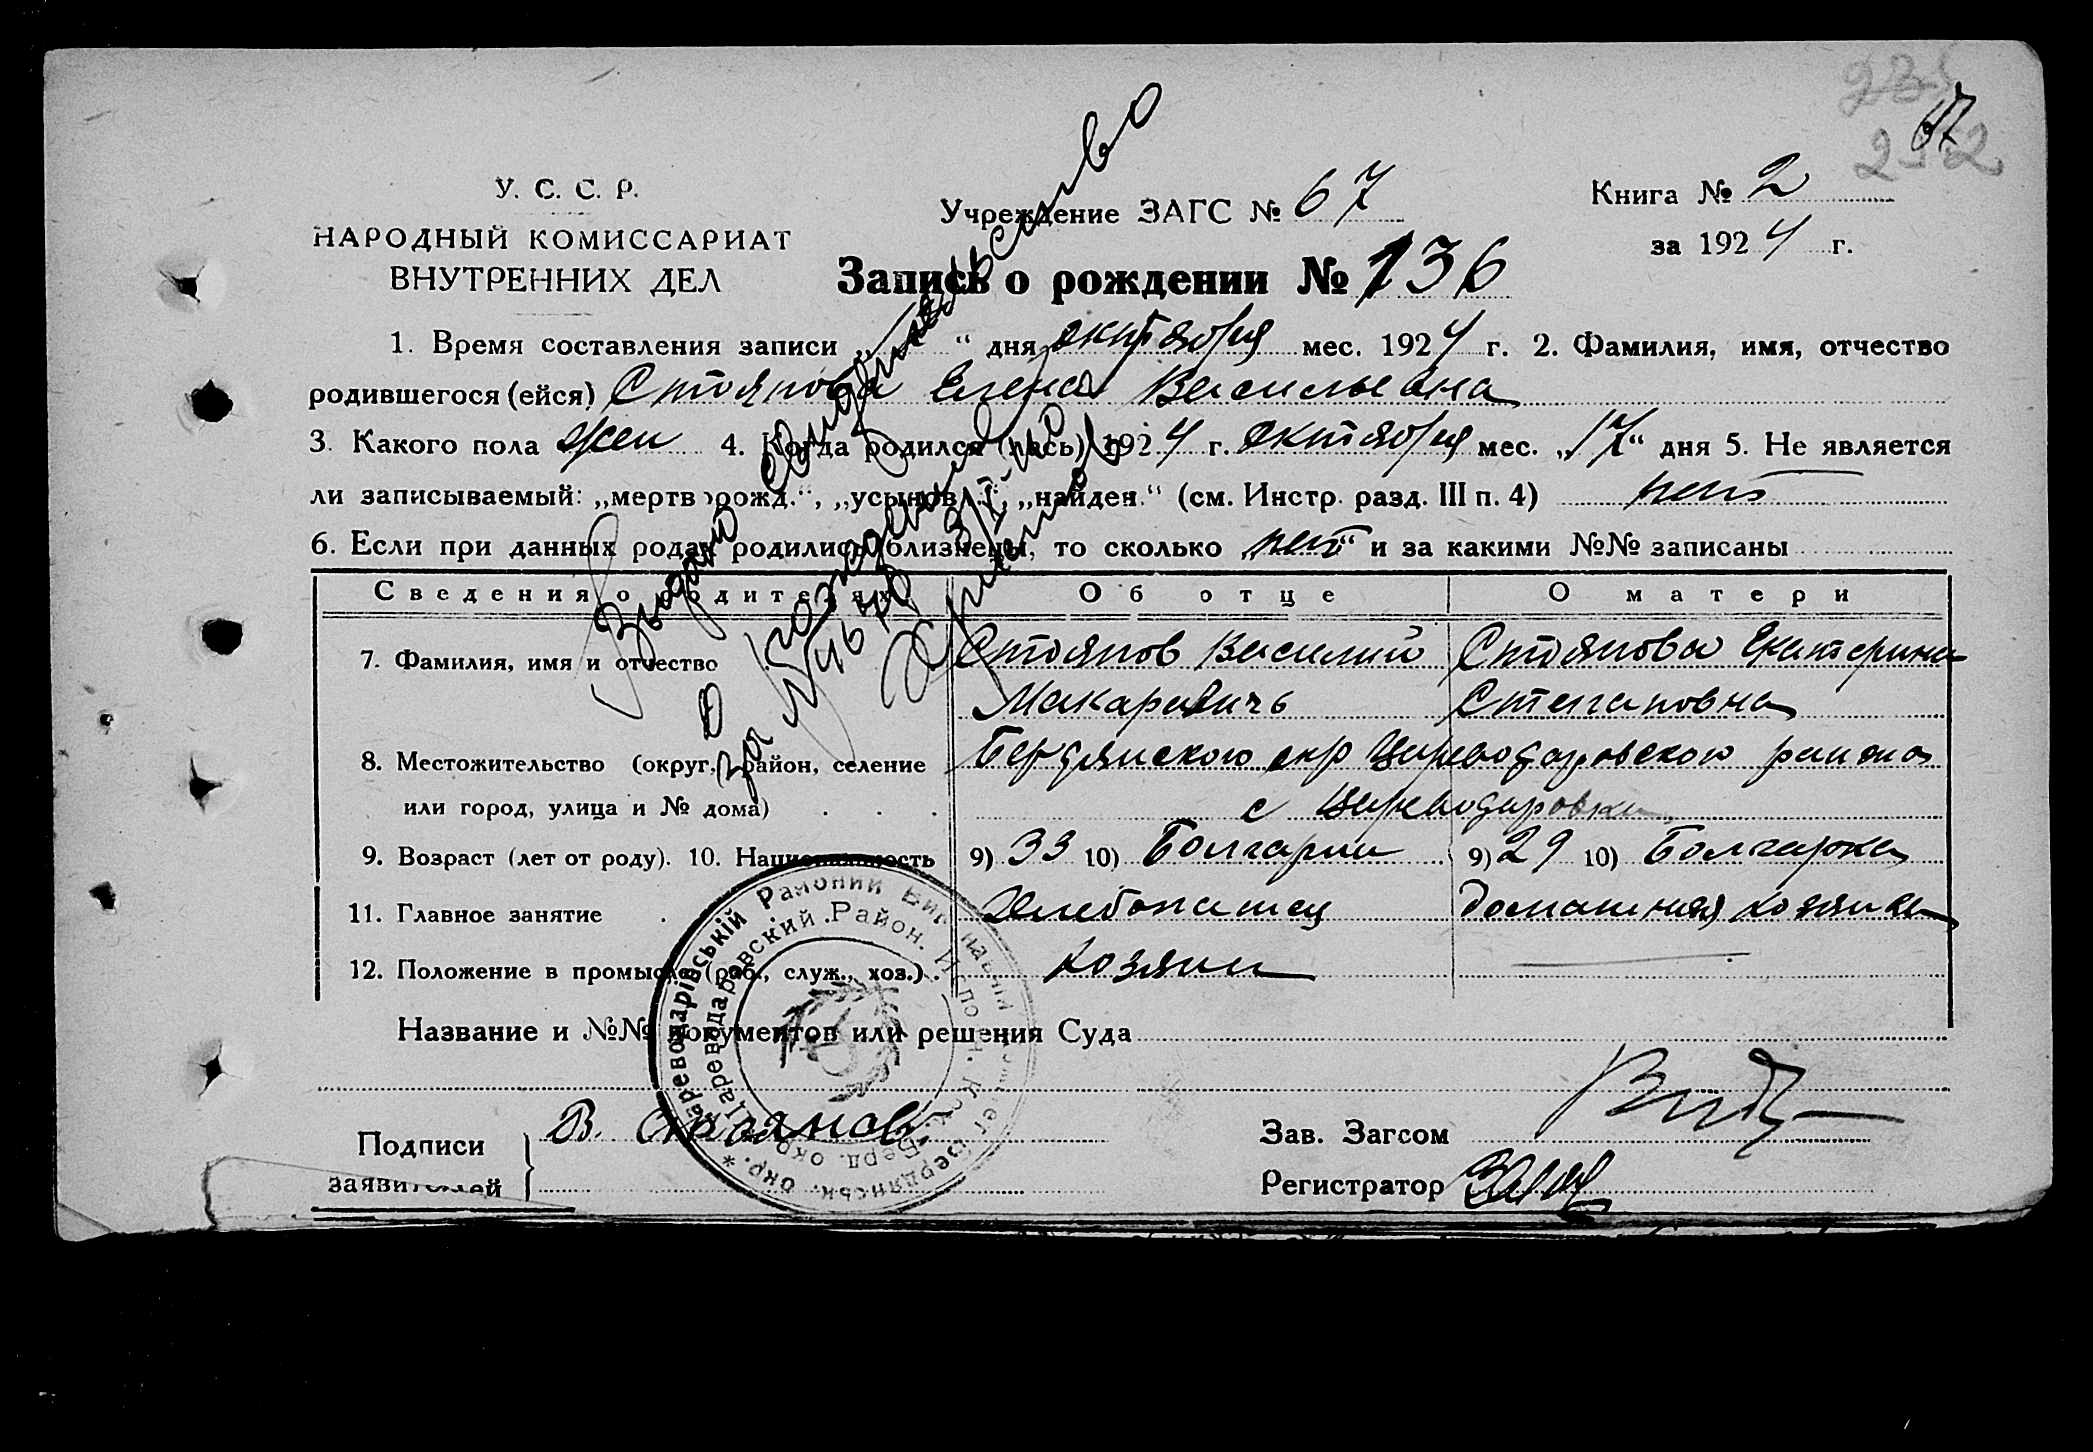 235
67
252
У. С. С. Р.
НАРОДНЫЙ КОМИССАРИАТ
ВНУТРЕННИХ ДЕЛ
Учреждение ЗАГС № 67
Книга № 2
за 1924 г.
Запись о рождении № 136
1. Время составления записи „ “ дня октября мес. 1924 г. 2. Фамилия, имя, отчество
родившегося (ейся) Стоянова Елена Васильевна
3. Какого пола жен 4. Когда родился (лась) 1924 г. октября мес. „17“ дня 5. Не является
ли записываемый: „мертворожд.“, „усынов.“, „найден.“ (см. Инстр. разд. III п. 4) нет
6. Если при данных родах родились близнецы, то сколько „нет“ и за какими №№ записаны
Выдано свидетельство
о рождении
за №
Сведения о родителях
Об отце
О матери
7. Фамилия, имя и отчество
Стоянов Василий
Макаревичъ
Стоянова Екатерина
Степановна
8. Местожительство (округ, район, селение
или город, улица и № дома)
Бердянского окр Цареводаровского района
с Цареводаровка
9. Возраст (лет от роду). 10. Национальность
9) 33 10) Болгарин
9) 29 10) Болгарка
11. Главное занятие
Хлебопашец
домашняя хозяйка
12. Положение в промысле (раб., служ., хоз.)
хозяин
Название и №№ документов или решения Суда
Подписи
заявителей
В. Стоянов
Зав. Загсом
Регистратор
Цареводарівській Районий Виконавчий Комітет Бердянськ. окр.
Цареводаровский Район. Исполн. К-т Берд. окр.